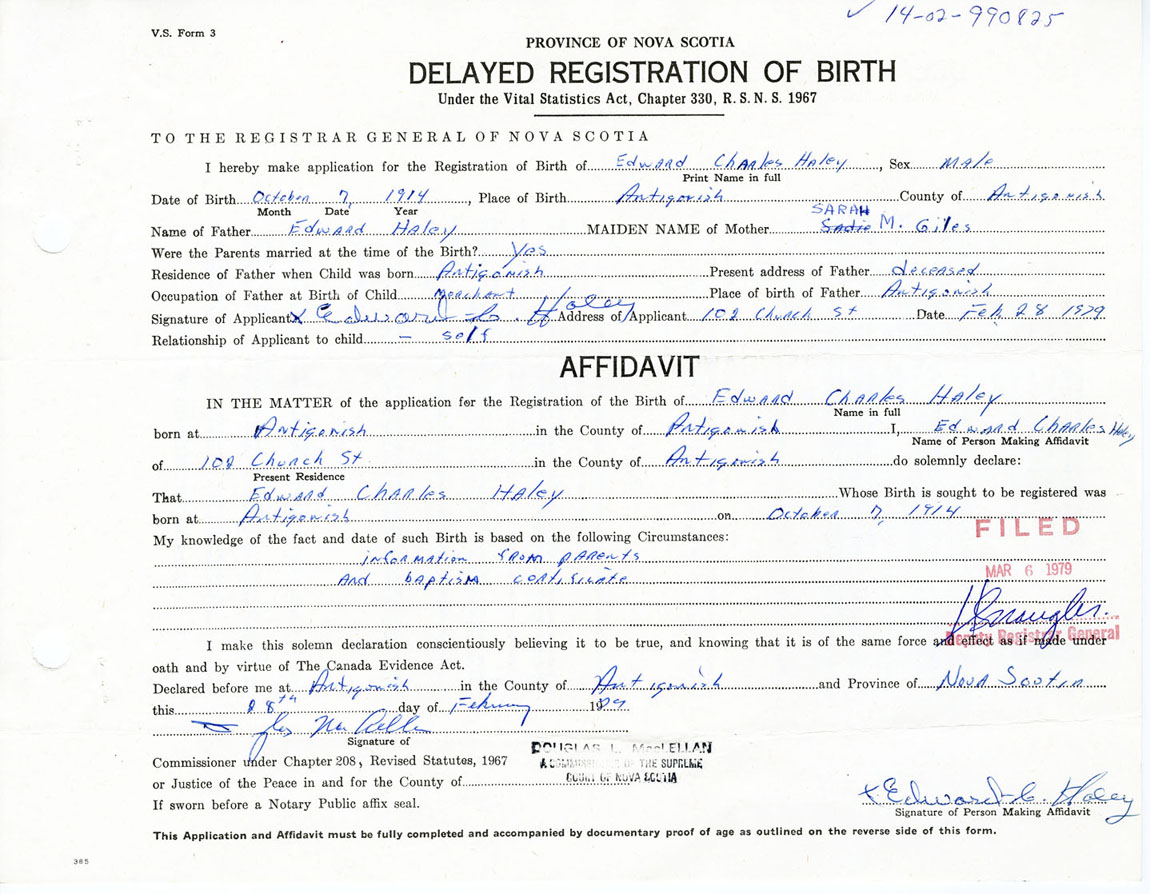 ✓ 14-02-990825
V.S. Form 3
PROVINCE OF NOVA SCOTIA
DELAYED REGISTRATION OF BIRTH
Under the Vital Statistics Act, Chapter 330, R.S.N.S. 1967
TO THE REGISTRAR GENERAL OF NOVA SCOTIA
I hereby make application for the Registration of Birth of Edward Charles Haley, Sex Male
Print Name in full
Date of Birth October 7, 1914, Place of Birth Antigonish County of Antigonish
Month Date Year
SARAH
Name of Father Edward Haley MAIDEN NAME of Mother Sadie M. Giles
Were the Parents married at the time of the Birth? Yes
Residence of Father when Child was born Antigonish Present address of Father deceased
Occupation of Father at Birth of Child Merchant Place of birth of Father Antigonish
Signature of Applicant x Edward C. Haley Address of Applicant 102 Church St Date Feb 28 1979
Relationship of Applicant to child - self
AFFIDAVIT
IN THE MATTER of the application for the Registration of the Birth of Edward Charles Haley
Name in full
born at Antigonish in the County of Antigonish I, Edward Charles Haley
Name of Person Making Affidavit
of 102 Church St in the County of Antigonish do solemnly declare:
Present Residence
That Edward Charles Haley Whose Birth is sought to be registered was
born at Antigonish on October 7, 1914
FILED
My knowledge of the fact and date of such Birth is based on the following Circumstances:
information from parents
MAR 6 1979
And baptism certificate
Deputy Registrar General
I make this solemn declaration conscientiously believing it to be true, and knowing that it is of the same force and effect as if made under
oath and by virtue of The Canada Evidence Act.
Declared before me at Antigonish in the County of Antigonish and Province of Nova Scotia
this 28th day of February 1979
Signature of
DOUGLAS L. MacLELLAN
Commissioner under Chapter 208, Revised Statutes, 1967
A COMMISSIONER OF THE SUPREME
or Justice of the Peace in and for the County of
COURT OF NOVA SCOTIA
x Edward C. Haley
If sworn before a Notary Public affix seal.
Signature of Person Making Affidavit
This Application and Affidavit must be fully completed and accompanied by documentary proof of age as outlined on the reverse side of this form.
385